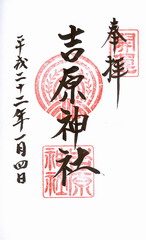 奉拝
吉原神社
平成二十二年一月四日